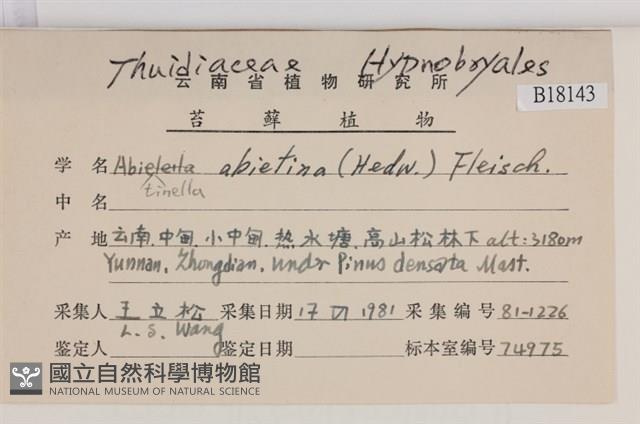 Thuidiaceae Hypnobryales
云南省植物研究所
B18143
苔藓植物
学名 Abietella abietina (Hedw.) Fleisch.
tinella
中名
产地 云南.中甸.小中甸.热水塘.高山松林下 alt:3180m
Yunnan, Zhongdian, undr Pinus densata Mast.
采集人 王立松 采集日期 17 VI 1981 采集编号 81-1226
L. S. Wang
鉴定人 鉴定日期 标本室编号 74975
國立自然科學博物館
NATIONAL MUSEUM OF NATURAL SCIENCE